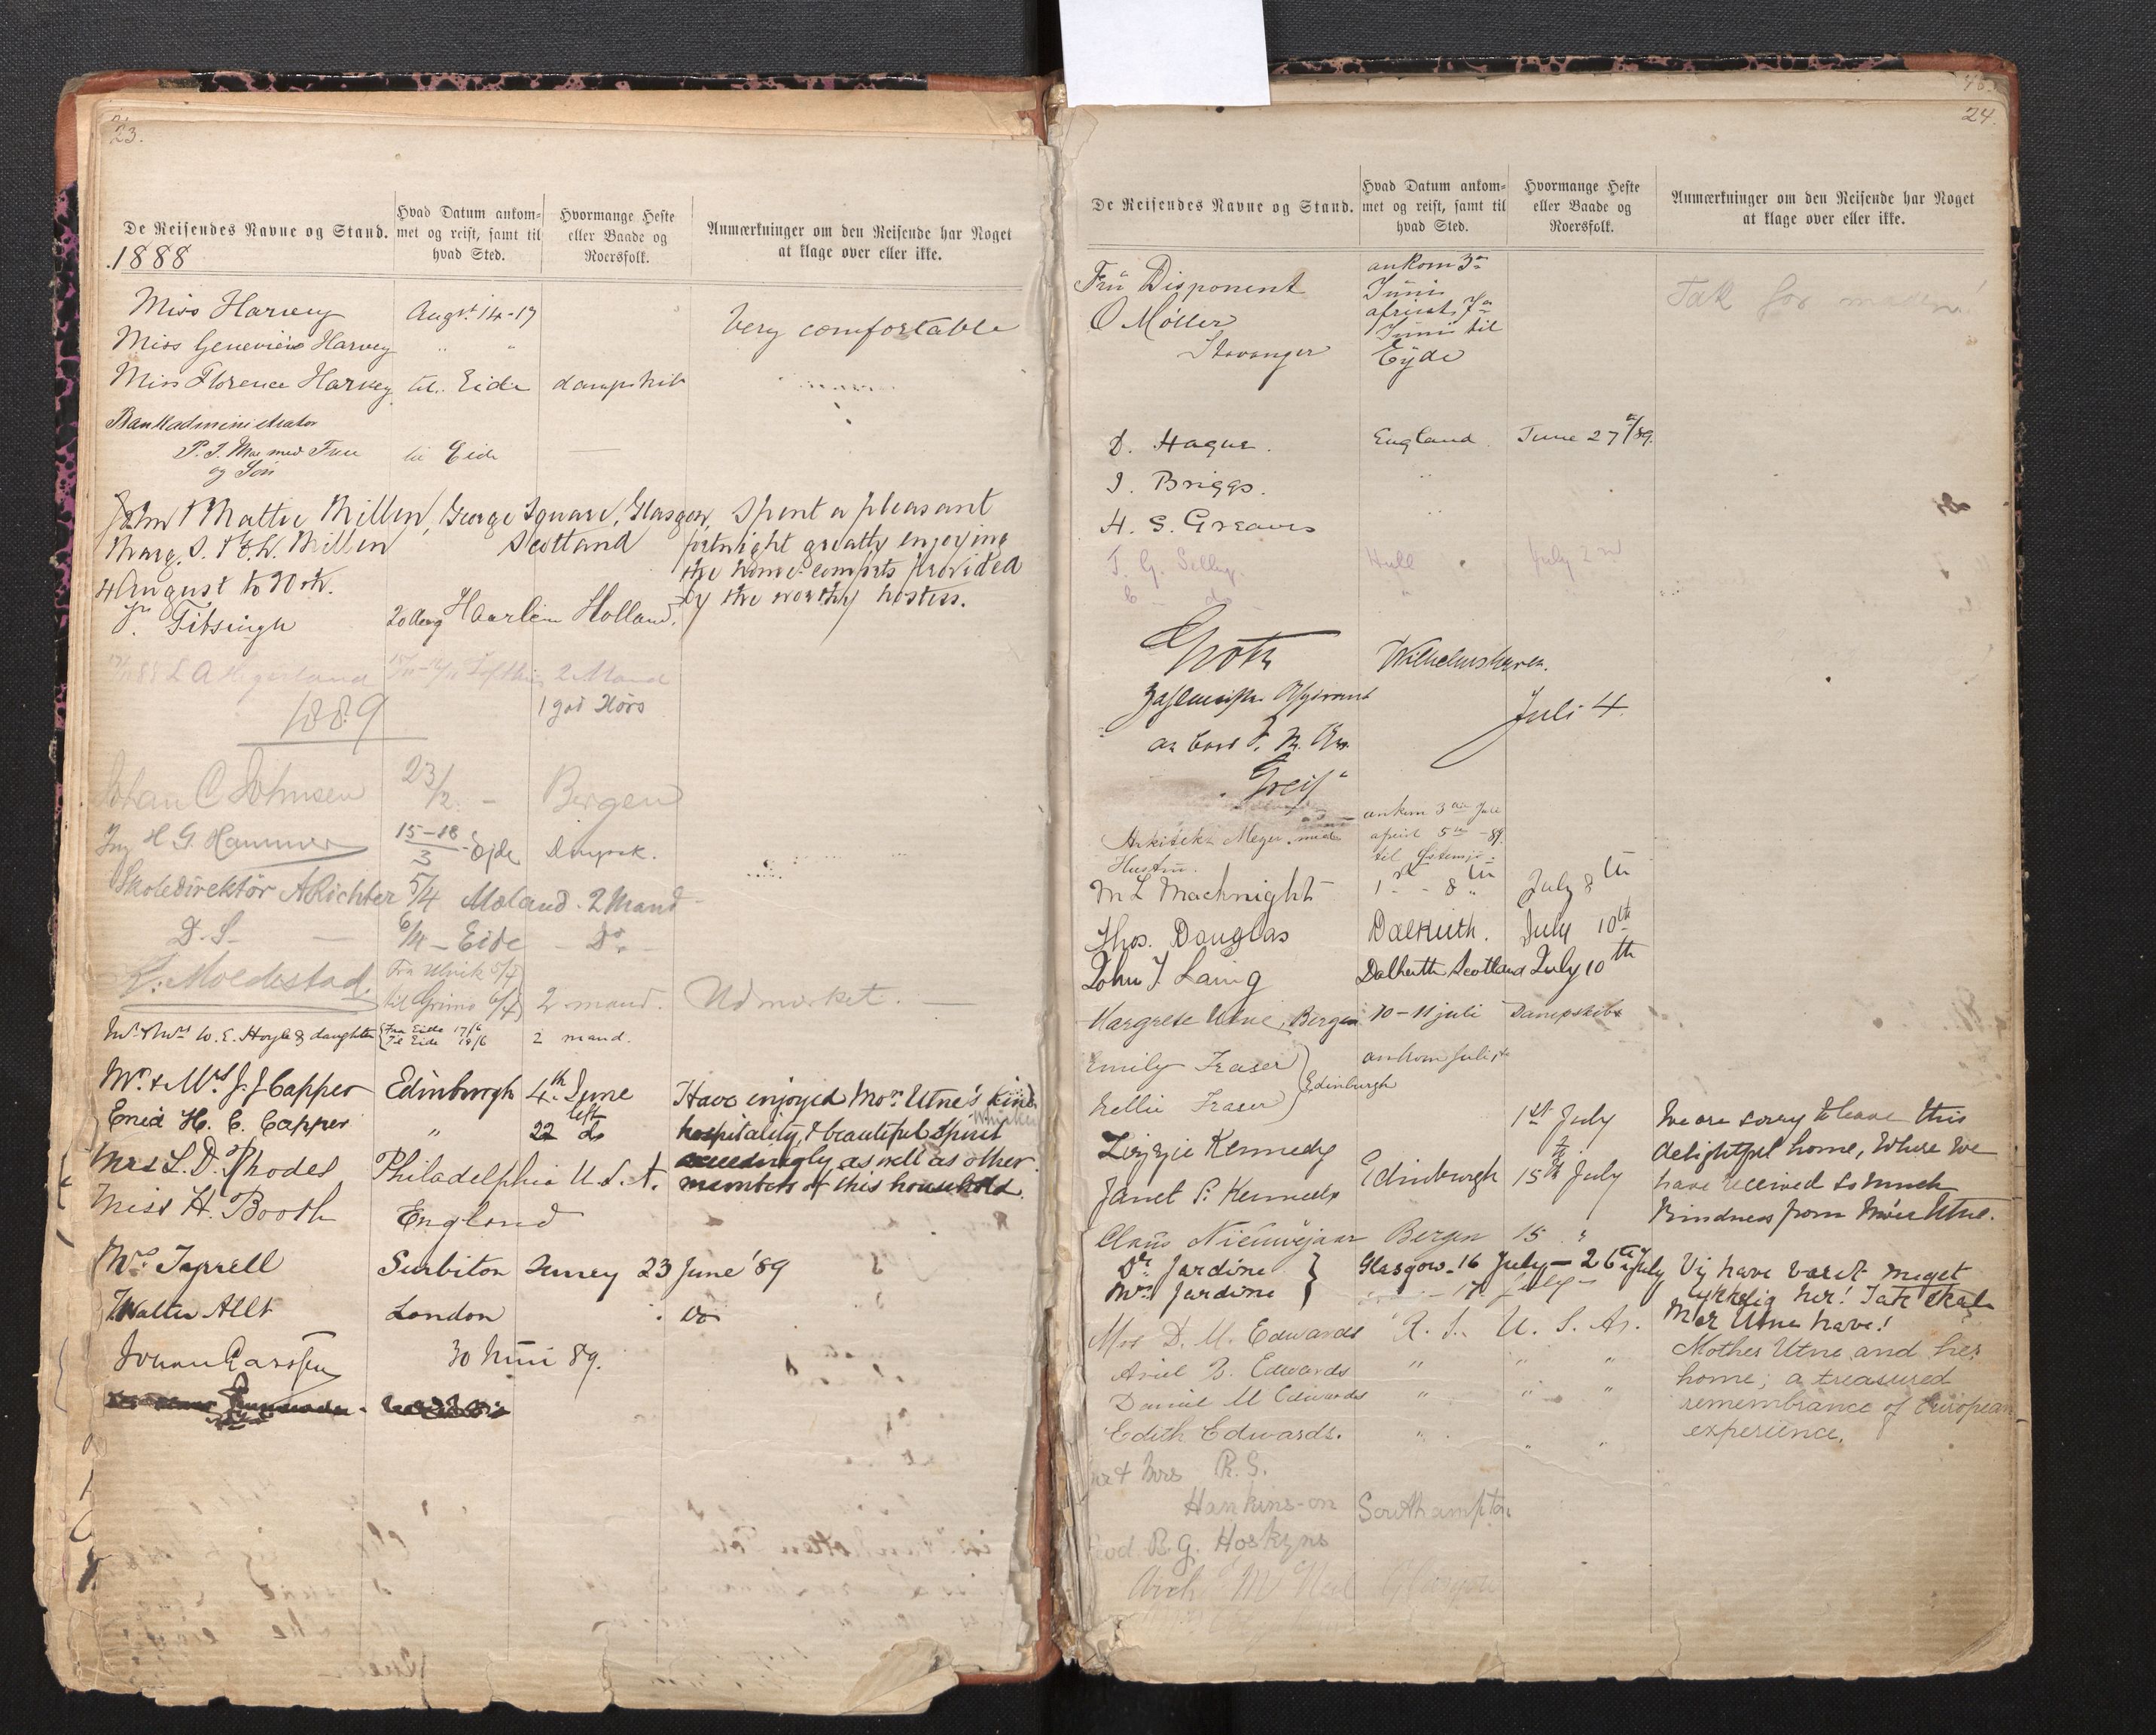 23.
De Reisendes Navne og Stand.
Hvad Datum ankom-
met og reist, samt til
hvad Sted.
Hvormange Heste
eller Baade og
Roersfolk.
Anmærkninger om den Reisende har Noget
at klage over eller ikke.
1888
Miss Harvey Augst 14-17 Very comfortable
Miss Genevieve Harvey " "
Miss Florence Harvey til Eide dampskib
Bankadministrator
P. J. Moe med Frue til Eide
og Søn
John & Mattie Millen, George Square, Glasgow, Spent a pleasant
Marg. S. & E. L. Millen Scotland fortnight greatly enjoying
the home-comforts provided
4 August to 20th. by the worthy hostess.
Titsingh Haarlem Holland.
2 Mand
1889 1 god Hors
Johan C Johnsen 23/2 - Bergen
Ing H G. Hammer 15-18/3 Ejde Dampsk.
Skoledirektör A Richter 5/4 Maland - 2 Mand
D. S - 6/4 - Eide - Do -
Moldestad Fra Ulvik 5/4
til Grimo 6/4 2 mand. Udmærket.
Mr & Mrs W. E. Hoyle & daughter Fra Eide 17/6
Til Eide 18/6 2 mand.
Mr. & Mrs J. J Capper Edinburgh 4th June Have enjoyed Mor Utne's kind
Enid H. C. Capper " left 22 do hospitality, & beautiful spirit
exceedingly as well as other
Mrs L. D. Rhodes Philadelphia U. S. A. members of this household.
Miss H. Booth England
Mrs Tyrrell Surbiton Surrey 23 June '89
Walter Allt London Do
30 Juni 89.
24.
De Reisendes Navne og Stand.
Hvad Datum ankom-
met og reist, samt til
hvad Sted.
Hvormange Heste
eller Baade og
Roersfolk.
Anmærkninger om den Reisende har Noget
at klage over eller ikke.
Frü Disponent ankom 3die
Juni Tak for maden!
O Møller afreist 7de
Juni til
Stavanger Eyde
D. Hague. England. June 27th/89.
J. Briggs. "
H. S. Greaves "
T. G. Selby. Hull July 2nd
do
Groth Wilhelmshaven.
Juli 4
„Greif“
ankom 3die Juli
Arkitekt Meyer med afreist 5te -89.
Hustru. til
M L Macknight 1st - 8th July 8th
Thos. Douglas Dalkeith. July 10th
John J. Laing Dalkeith Scotland July 10th
Margrete Utne, Bergen 10-11 juli Dampskibs
Emily Fraser ankom Juli
Edinburgh
Nellie Fraser
1st July We are sorry to leave this
Lizzie Kennedy to delightful home, Where we
Janet P. Kennedy Edinburgh 15th July have received so much
kindness from Moer Utne.
Claus Nieuwejaar Bergen 15 "
Dr Jardine Glasgow 16 July - 26th July Vi have varet meget
Mrs Jardine lykkelig her! Tak skal
Mor Utne have!
Mrs D. M. Edwards R. I. U. S. A. Mother Utne and her
Ariel B. Edwards " " " home; a treasured
Daniel M Edwards " " " remembrance of European
Edith Edwards. " " " experience.
Mr & Mrs R. G.
Hankinson Southampton
Revd B. G. Hoskyns
Arch. McNeil Glasgow